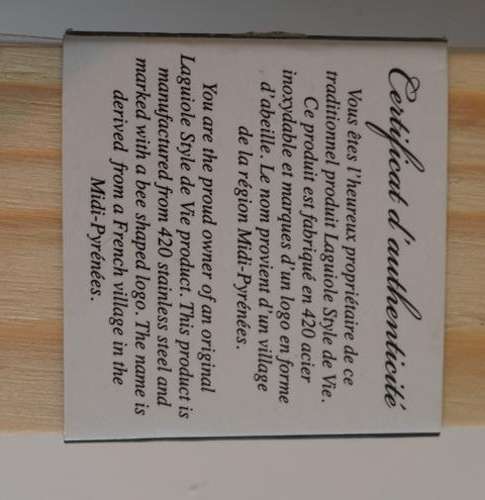 Certificat d'authenticité
Vous êtes l'heureux propriétaire de ce
traditionnel produit Laguiole Style de Vie.
Ce produit est fabriqué en 420 acier
inoxydable et marques d'un logo en forme
d'abeille. Le nom provient d'un village
de la région Midi-Pyrénées.
You are the proud owner of an original
Laguiole Style de Vie product. This product is
manufactured from 420 stainless steel and
marked with a bee shaped logo. The name is
derived from a French village in the
Midi-Pyrénées.